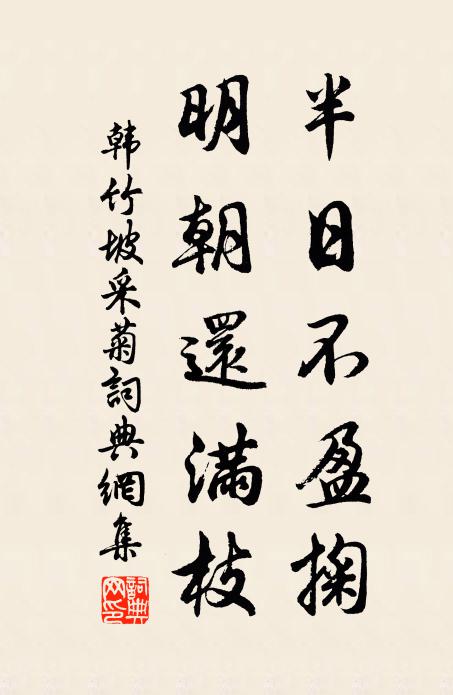 半日不盈掬
明朝還滿枝
韩竹坡采菊詞典網集
詞典网印